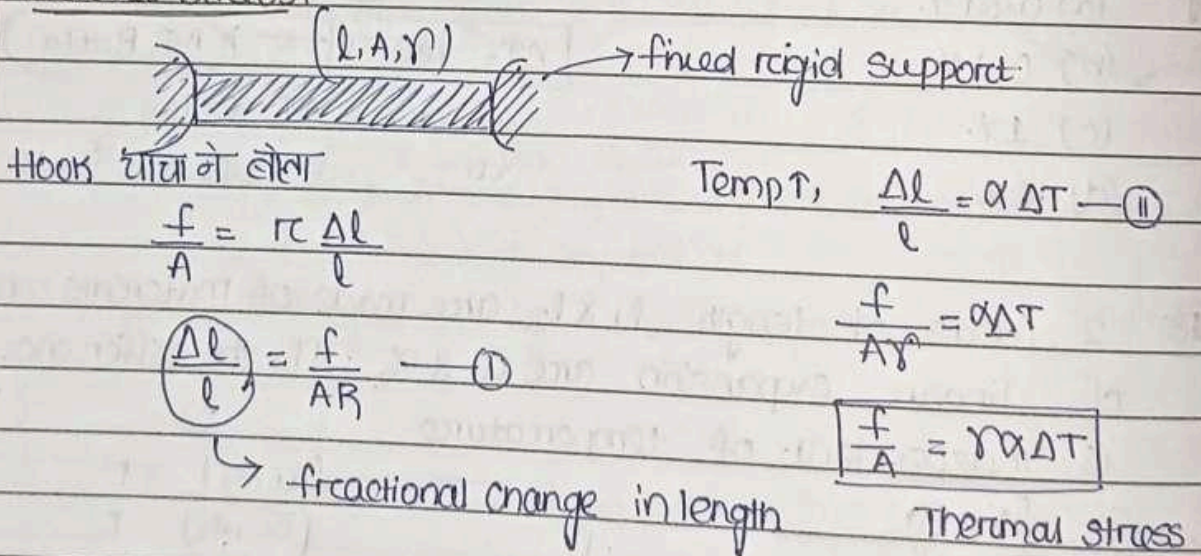 (l, A, γ)
→ fixed rigid support
Hook चाचा ने बोला
f/A = π Δl/l
Δl/l = f/AR — ①
↳ fractional change in length
Temp↑, Δl/l = α ΔT — ⑪
f/Aγ = αΔT
f/A = γαΔT
Thermal stress